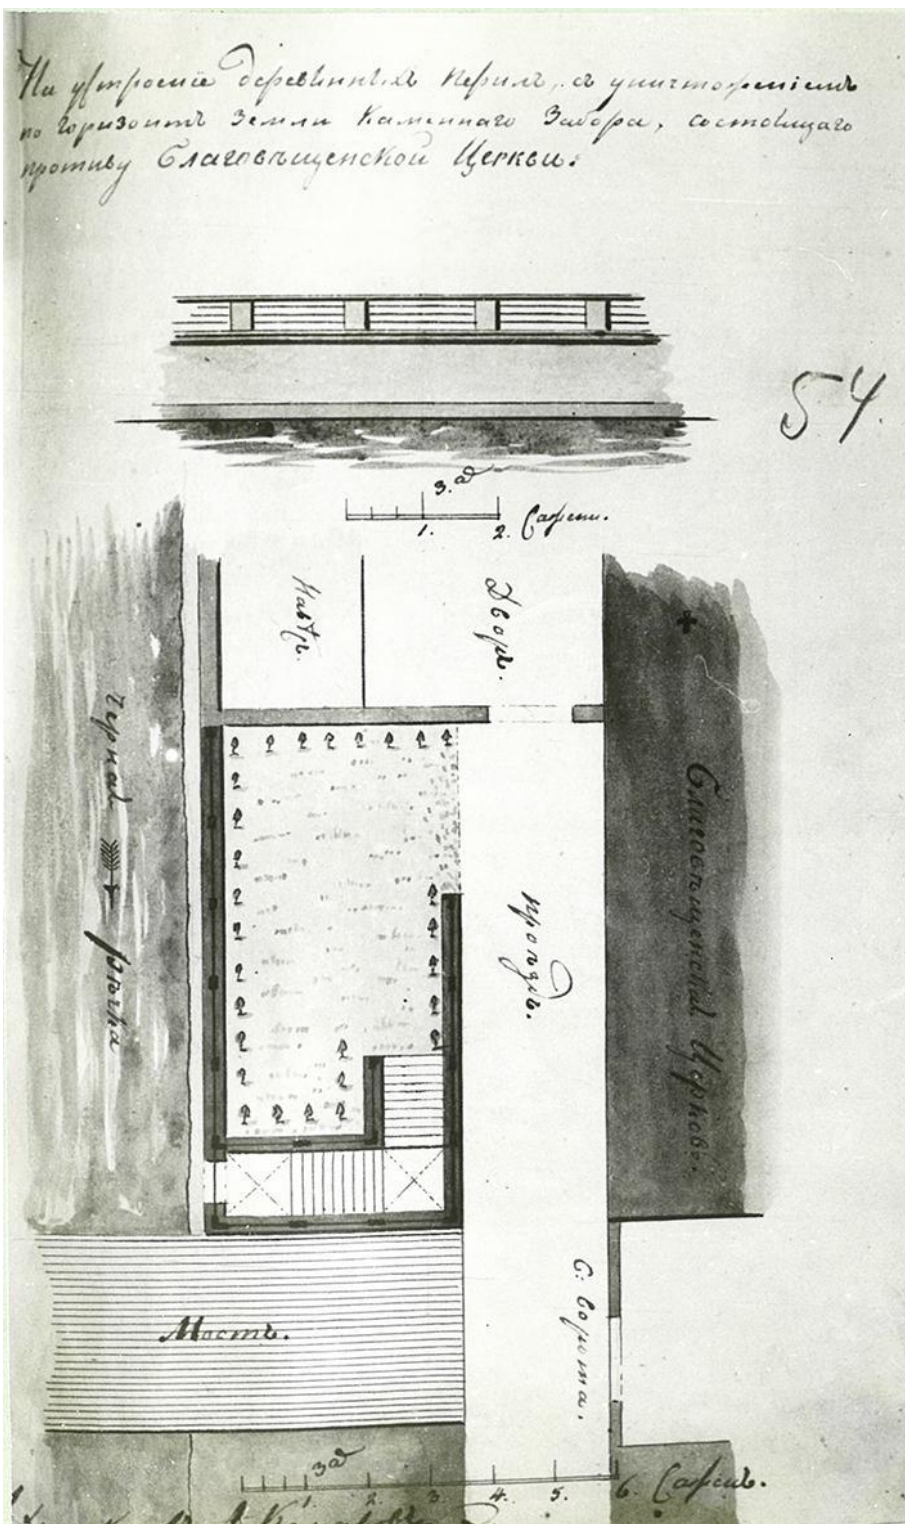 На устроение деревянныхъ перилъ, съ уничтоженiемъ
по горизонтъ земли каменнаго забора, состоящаго
противу Благовѣщенской Церкви.
54.
3. ад
1. 2. Сажени.
Навѣсъ.
Дворъ.
Черная рѣчка
Благовѣщенская Церковь.
проѣздъ.
Мостъ.
С. ворота.
3 ад
1 2. 3. 4. 5. 6. Сажень.